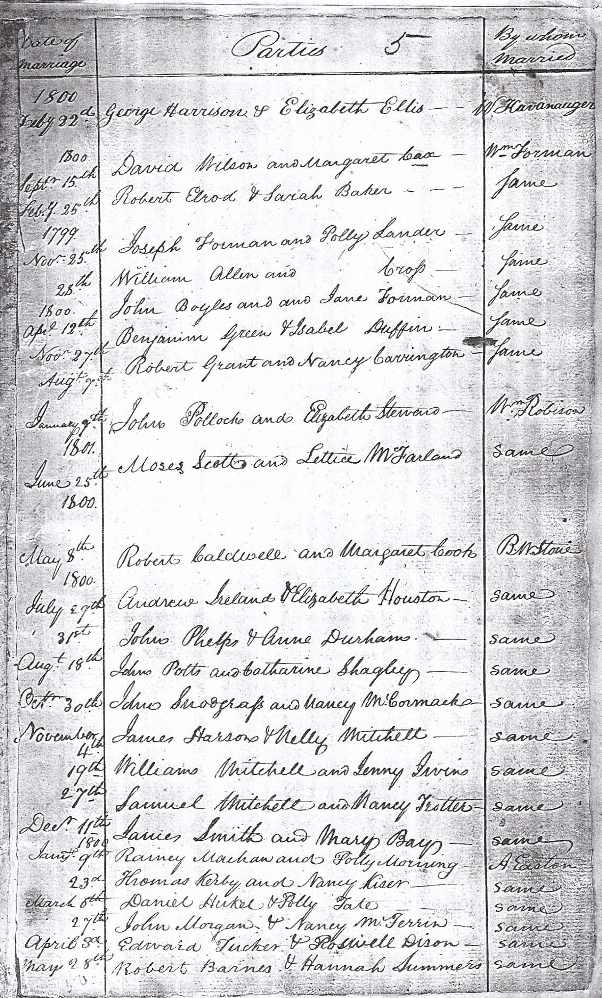 Date of marriage Parties 5 By whom married
1800
Feby 22d George Harrison & Elizabeth Ellis - - W Kavanauger
1800
Septr 15th David Wilson and Margaret Cax - Wm Forman
Feby 25th Robert Elrod & Sarah Baker - - - Same
1799
Novr 25th Joseph Forman and Polly Lander - Same
25th William Allen and Cross - Same
1800. John Boyles and and Jane Forman - Same
Apl 12th Benjamin Green & Isabel Duffin - Same
Novr 27th Robert Grant and Nancy Carrington - Same
Augt
January 9th John Pollock and Elizabeth Steward - Wm Robison
1801. Moses Scott and Lettice McFarland same
June 25th
1800.
May 8th Robert Caldwell and Margaret Cook B.W. Stone
1800.
July 29th Andrew Ireland & Elizabeth Houston - same
31st John Phelps & Anne Durham. - same
Augt 18th John Potts and Catharine Shagley - same
Octr 30th John Snodgrass and Nancy McCormack - same
November 4th James Harsons & Nelly Mitchell - same
19th Williams Mitchell and Jenny Irvins same
27th Samuel Mitchell and Nancy Trotter - same
Decr 11th 1800 James Smith and Mary Bay - same
Jany 9th Ramey Machan and Polly Morning A Easton
23d Thomas Kerby and Nancy Kiser - same
March 6th Daniel Hickel & Polly Tate - same
27th John Morgan & Nancy McFerrin - same
April 3d Edward Tucker & Roswell Dixon - same
May 28th Robert Barnes & Hannah Summers same